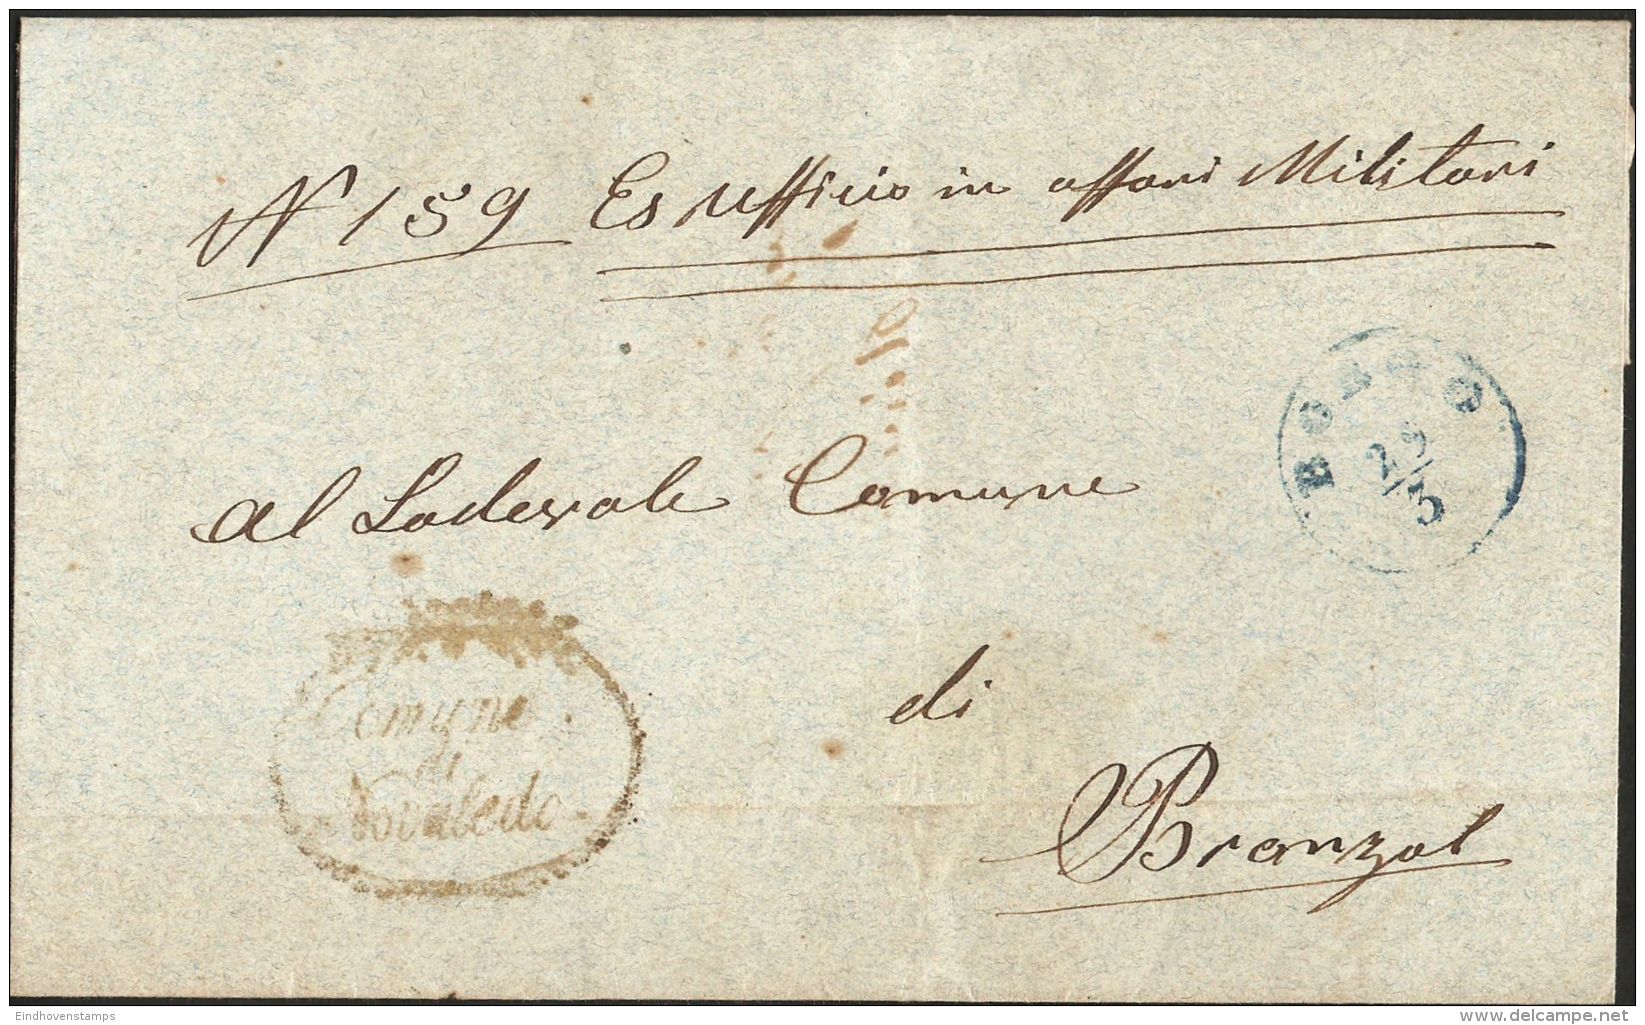 N 159 Es Ufficio in affari Militari
BORGO
23/3
Al Lodevole Comune
Comune
di
Novaledo
di
Branzol
Eindhovenstamps
www.delcampe.net